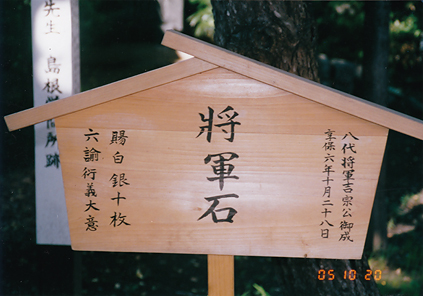 八代将軍吉宗公御成
享保六年十月二十八日
將軍石
賜白銀十枚
六諭衍義大意
先生・島根
所跡
05 10 20